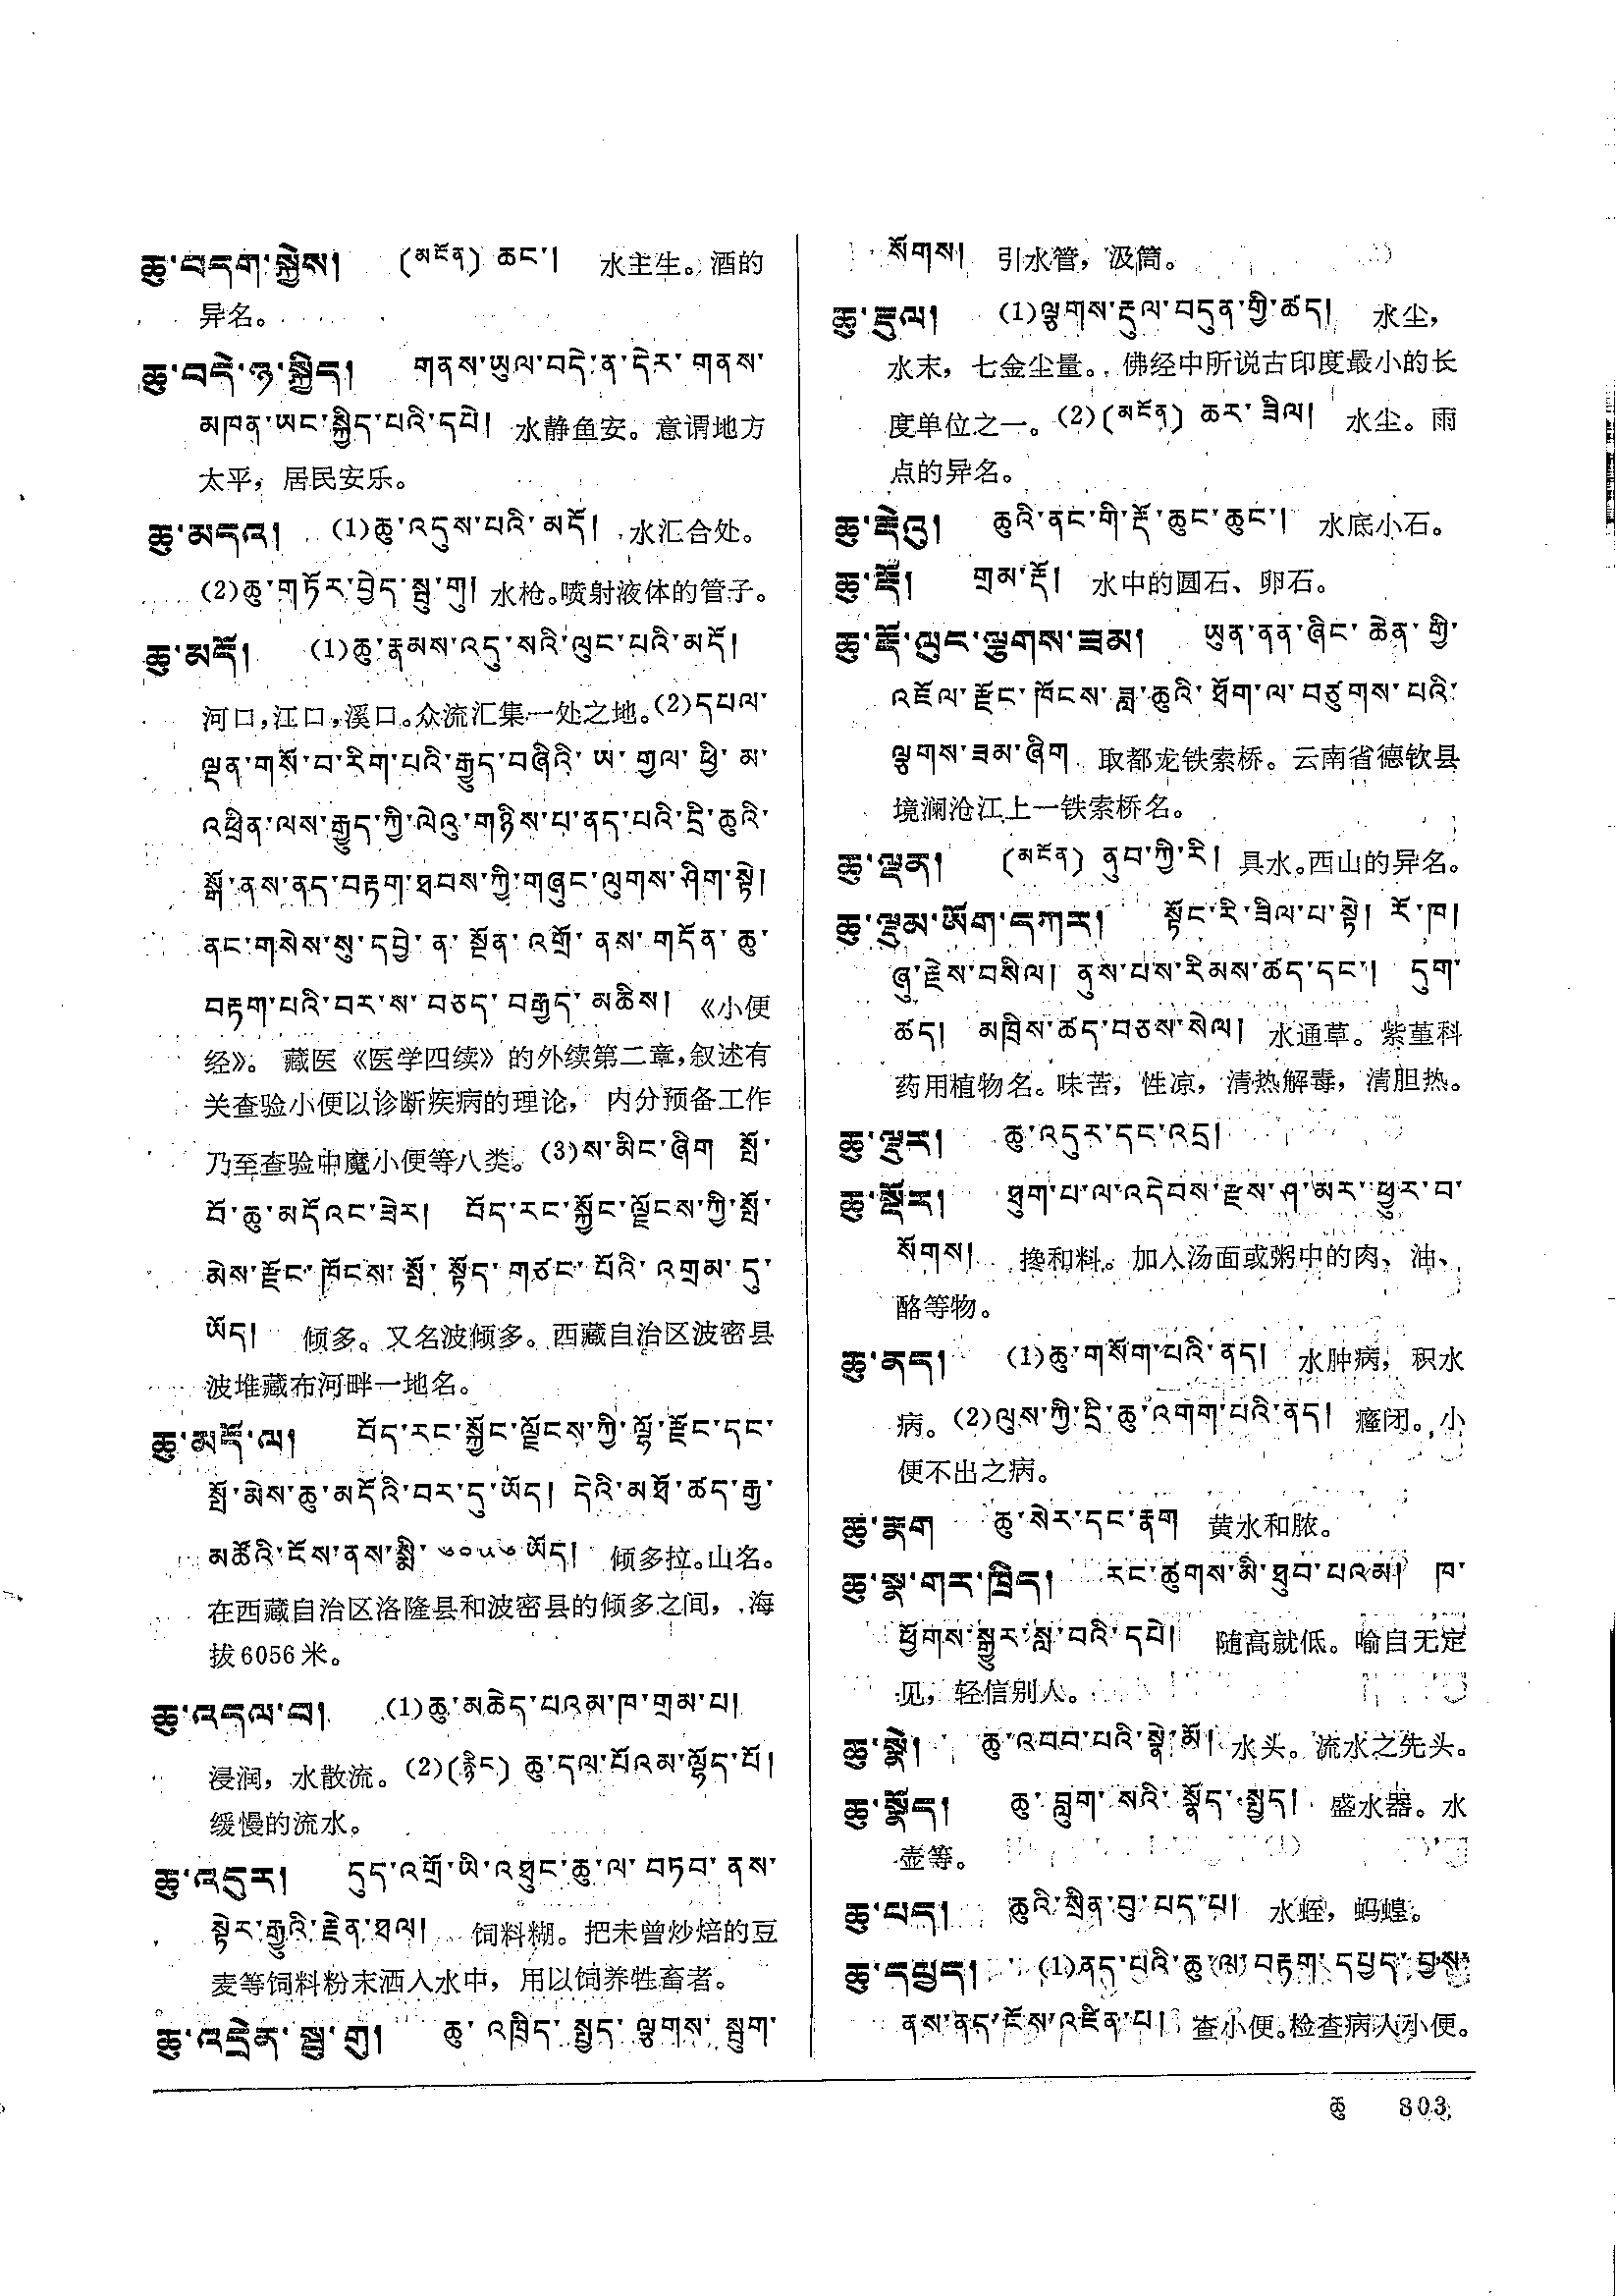 ཆུ་བདག་སྐྱེས། (མངོན) ཆང་། 水主生。酒的
异名。
ཆུ་བདེ་ཉ་སྐྱིད། གནས་ཡུལ་བདེ་ན་དེར་གནས་
མཁན་ཡང་སྐྱིད་པའི་དཔེ། 水静鱼安。意谓地方
太平，居民安乐。
ཆུ་མདའ། (1)ཆུ་འདུས་པའི་མདོ། 水汇合处。
(2)ཆུ་གཏོར་བྱེད་སྦུ་གུ། 水枪。喷射液体的管子。
ཆུ་མདོ། (1)ཆུ་རྣམས་འདུ་སའི་ལུང་པའི་མདོ།
河口，江口，溪口。众流汇集一处之地。(2)དཔལ་
ལྡན་གསོ་བ་རིག་པའི་རྒྱུད་བཞིའི་ཨ་གྱལ་ཕྱི་མ་
འཕྲིན་ལས་རྒྱུད་ཀྱི་ལེའུ་གཉིས་པ་ནད་པའི་དྲི་ཆུའི་
སྒོ་ནས་ནད་བརྟག་ཐབས་ཀྱི་གཞུང་ལུགས་ཤིག་སྟེ།
ནང་གསེས་སུ་དབྱེ་ན་སྔོན་འགྲོ་ནས་གདོན་ཆུ་
བརྟག་པའི་བར་ས་བཅད་བརྒྱད་མཆིས། 《小便
经》。藏医《医学四续》的外续第二章，叙述有
关查验小便以诊断疾病的理论，内分预备工作
乃至查验中魔小便等八类。(3)ས་མིང་ཞིག སྤོ་
བོ་ཆུ་མདོའང་ཟེར། བོད་རང་སྐྱོང་ལྗོངས་ཀྱི་སྤོ་
མེས་རྫོང་ཁོངས་སྤོ་སྟོད་གཙང་པོའི་འགྲམ་དུ་
ཡོད། 倾多。又名波倾多。西藏自治区波密县
波堆藏布河畔一地名。
ཆུ་མདོ་ལ། བོད་རང་སྐྱོང་ལྗོངས་ཀྱི་ལྷོ་རྫོང་དང་
སྤོ་མེས་ཆུ་མདོའི་བར་དུ་ཡོད། དེའི་མཐོ་ཚད་རྒྱ་
མཚོའི་ངོས་ནས་སྨི་༦༠༥༦ཡོད། 倾多拉。山名。
在西藏自治区洛隆县和波密县的倾多之间，海
拔6056米。
ཆུ་འདལ་བ། (1)ཆུ་མཆེད་པའམ་ཁ་གྲམ་པ།
浸润，水散流。(2)(རྙིང) ཆུ་དལ་པོའམ་ལྷོད་པོ།
缓慢的流水。
ཆུ་འདུར། དུད་འགྲོ་ཡི་འཐུང་ཆུ་ལ་བཏབ་ནས་
སྟེར་རྒྱུའི་རྗེན་ཐལ། 饲料糊。把未曾炒焙的豆
麦等饲料粉末洒入水中，用以饲养牲畜者。
ཆུ་འདྲེན་སྦུ་གུ། ཆུ་འཁྲིད་སྤྱད་ལྕུགས་སྦུག་
སོགས། 引水管，汲筒。
ཆུ་རྡུལ། (1)ལྕགས་རྡུལ་བདུན་གྱི་ཚད། 水尘，
水末，七金尘量。佛经中所说古印度最小的长
度单位之一。(2)(མངོན) ཆར་ཟིལ། 水尘。雨
点的异名。
ཆུ་རྡེའུ། ཆུའི་ནང་གི་རྡོ་ཆུང་ཆུང་། 水底小石。
ཆུ་རྡོ། གྲམ་རྡོ། 水中的圆石、卵石。
ཆུ་རྡོ་ལུང་ལྕགས་ཟམ། ཡུན་ནན་ཞིང་ཆེན་གྱི་
འཇོལ་རྫོང་ཁོངས་ཟླ་ཆུའི་ཐོག་ལ་བཙུགས་པའི་
ལྕགས་ཟམ་ཞིག 取都龙铁索桥。云南省德钦县
境澜沧江上一铁索桥名。
ཆུ་ལྡན། (མངོན) ནུབ་ཀྱི་རི། 具水。西山的异名。
ཆུ་ལྡུམ་ཨོག་དཀར། སྟོང་རི་ཟིལ་པ་སྟེ། རོ་ཁ།
ཞུ་རྗེས་བསིལ། ནུས་པས་རིམས་ཚད་དང་། དུག་
ཚད། མཁྲིས་ཚད་བཅས་སེལ། 水通草。紫堇科
药用植物名。味苦，性凉，清热解毒，清胆热。
ཆུ་ལྡུར། ཆུ་འདུར་དང་འདྲ།
ཆུ་སྡོར། ཐུག་པ་ལ་འདེབས་རྫས་ཤ་མར་ཕྱུར་བ་
སོགས། 搀和料。加入汤面或粥中的肉、油、
酪等物。
ཆུ་ནད། (1)ཆུ་གསོག་པའི་ནད། 水肿病，积水
病。(2)ལུས་ཀྱི་དྲི་ཆུ་འགག་པའི་ནད། 癃闭。小
便不出之病。
ཆུ་རྣག ཆུ་སེར་དང་རྣག 黄水和脓。
ཆུ་སྣ་གར་ཁྲིད། རང་ཚུགས་མི་ཐུབ་པའམ། ཁ་
ཕྱོགས་སྒྱུར་སླ་བའི་དཔེ། 随高就低。喻自无定
见，轻信别人。
ཆུ་སྣེ། ཆུ་འབབ་པའི་སྣེ་མོ། 水头。流水之先头。
ཆུ་སྣོད། ཆུ་བླུག་སའི་སྣོད་སྤྱད། 盛水器。水
壶等。
ཆུ་པད། ཆུའི་སྲིན་བུ་པད་པ། 水蛭，蚂蝗。
ཆུ་དཔྱད། (1)ནད་པའི་ཆུ་ལ་བརྟག་དཔྱད་བྱས་
ནས་ནད་ངོས་འཛིན་པ། 查小便。检查病人小便。
ཆུ 803